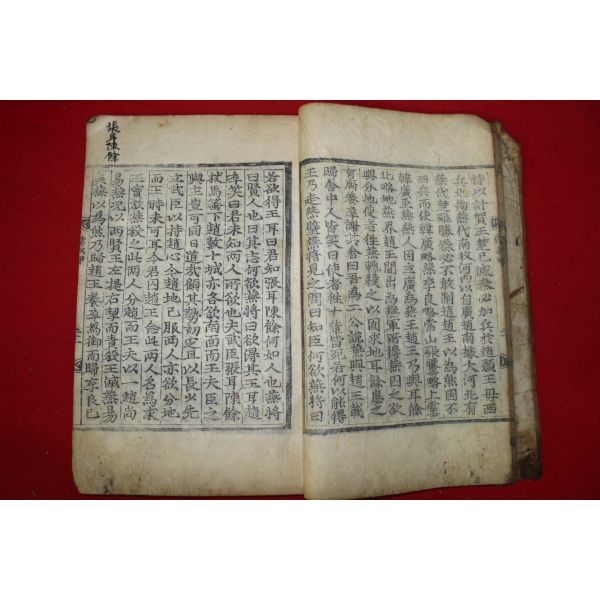 特以計賀王楚已滅秦必加兵於趙願王毋西
兵北徇燕代南收河內以自廣趙南據大河北有
燕代楚雖勝秦必不敢制趙趙王以為然因不
西兵而使韓廣略燕李良略常山張黶略上黨
韓廣至燕燕人因立廣為燕王趙王乃與耳餘
北略地燕界趙王間出為燕軍所得燕囚之欲
與分地使者往燕輒殺之以固求地耳餘患之
有廝養卒謝其舍曰吾為二公說燕與趙王載
歸舍中人皆笑曰使者往十輩皆死若何以能得
王乃走燕壁燕將見之問曰知臣何欲燕將曰
張耳陳餘
若欲得王耳曰君知張耳陳餘何如人也燕將
曰賢人也曰其志何欲燕將曰欲得其王耳趙
卒笑曰君未知兩人所欲也夫武臣張耳陳餘
杖馬箠下趙數十城亦各欲南面而王夫臣之
與主豈可同日道哉顧其勢初定且以長少先
立武臣以持趙心今趙地已服兩人亦欲分地
而王時未可耳今君囚趙王念此兩人名為求
王實欲燕殺之此兩人分趙而王夫以一趙尚
易燕況以兩賢王左提右挈而責殺王滅燕易
矣燕以為然乃歸趙王養卒為御而歸李良已